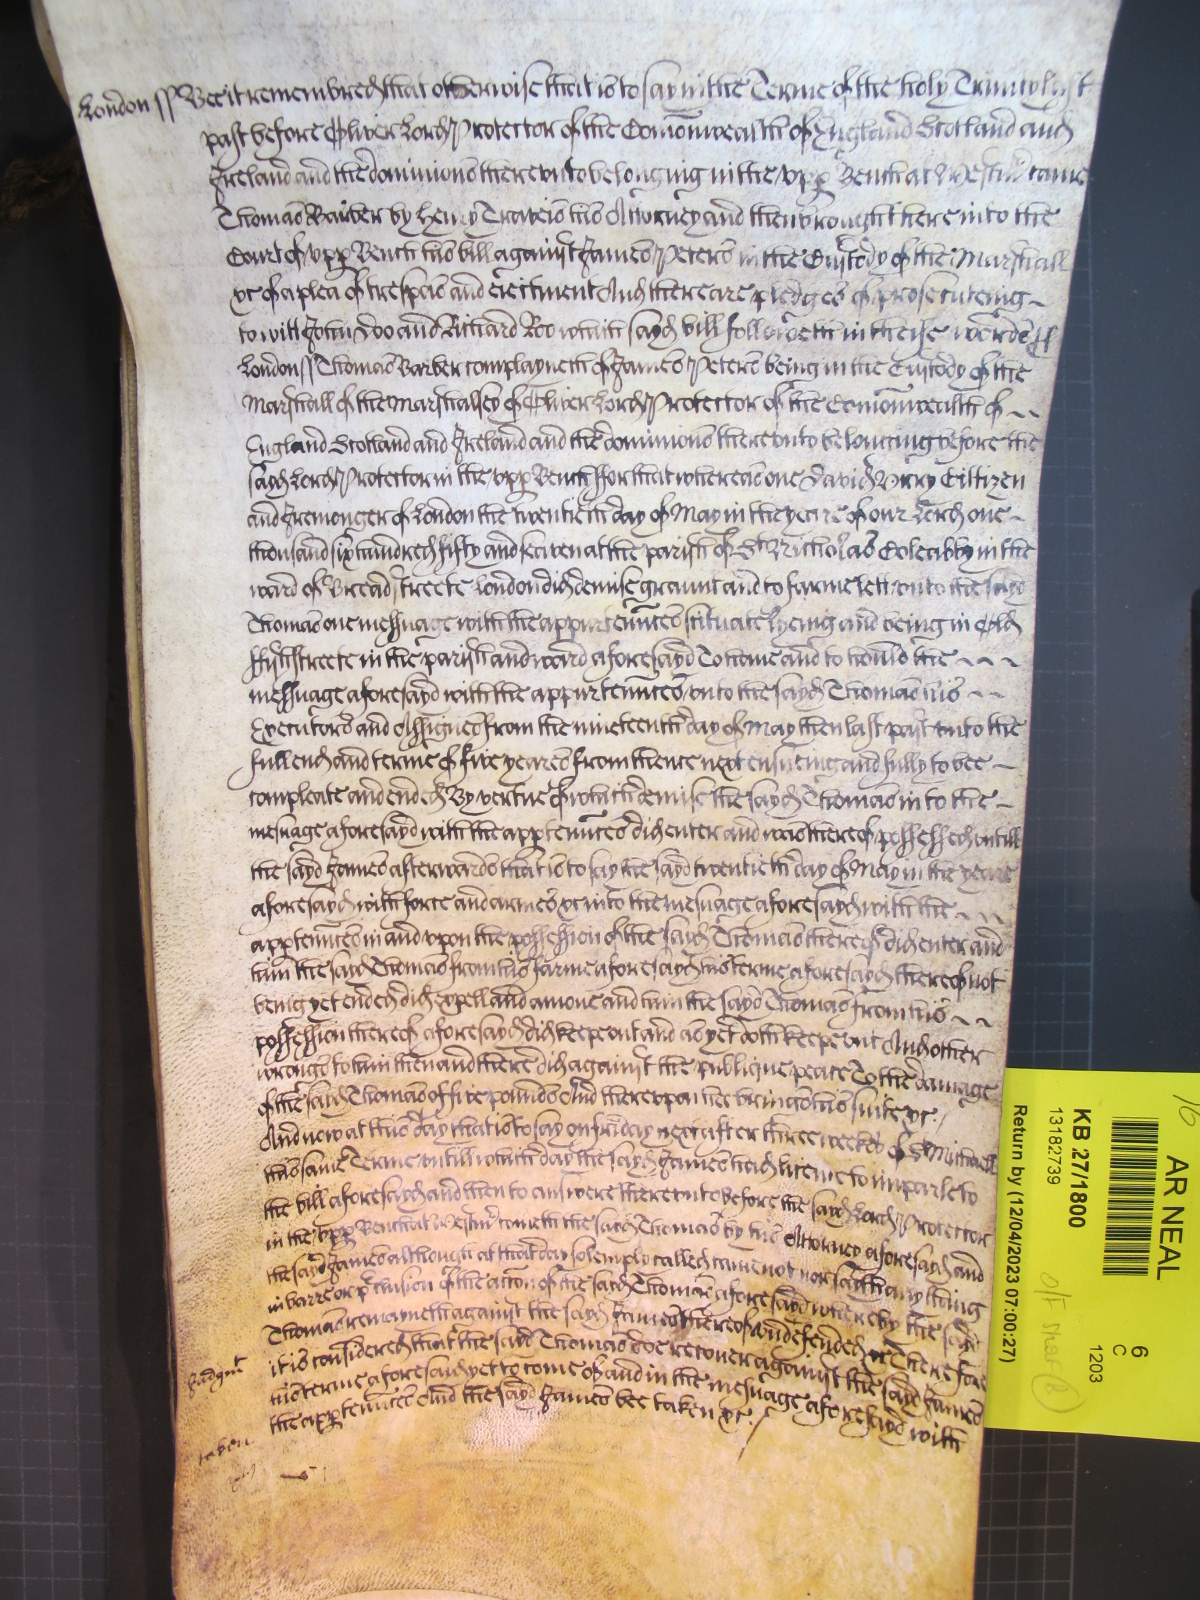 London ss Bee it remembred that otherwise that is to say in the Terme of the holy Trinity last
past before Oliver Lord Protector of the Comonwealth of England Scotland and
Ireland and the dominions thereunto belonging in the upp Bench at Westm came
Thomas Barber by Henry Travers his Attorney and then brought here into the
Court of upp Bench his bill against James Peters in the Custody of the Marshall
&c of a plea of trespas and eiectment And there are pledges of prosecuteing
to witt John Doo and Richard Roo which sayd bill followeth in theise words ss
London ss Thomas Barber complayneth of James Peters being in the Custody of the
Marshall of the Marshalsey of Oliver Lord Protector of the Comonwealth of
England Scotland and Ireland and the dominions thereunto belonging before the
sayd Lord Protector in the upp Bench ffor that whereas one David Urry Cittizen
and Iremonger of London the twentieth day of May in the yeare of our Lord one
thousand six hundred fifty and seaven at the parish of St Nicholas Coleabby in the
ward of Breadstreete London did demise graunt and to farme lett unto the sayd
Thomas one messuage with the appurtennces scituate lyeing and being in Old
ffishstreete in the parish and ward aforesayd To have and to hould the
messuage aforesayd with the appurtennces unto the sayd Thomas his
Executors and Assignes from the nineteenth day of May then last past unto the
full end and terme of five yeares from thence next ensueing and fully to bee
compleate and ended By vertue of which demise the sayd Thomas in to the
mesuage aforesayd with the apptennces did enter and was thereof possessed untill
the sayd James afterwards that is to say the sayd twentieth day of May in the yeare
aforesayd with force and armes &c into the mesuage aforesayd with the
apptennces in and upon the possession of the sayd Thomas thereof did enter and
him the sayd Thomas from his farme aforesayd his terme aforesayd thereof not
being yet ended did expell and amove and him the sayd Thomas from his
possession thereof aforesayd did keepe out and as yet doth keepe out And other
wrongs to him then and there did against the publique peace To the damage
of the sayd Thomas of five pounds And thereupon hee brings his suite &c
And now at this day that is to say on friday next after three weekes of St Michaell
this same Terme untill which day the sayd James had licence to imparle to
the bill aforesayd and then to answere thereunto before the sayd Lord Protector
in the upp Bench at Westmr cometh the sayd Thomas by his Attorney aforesayd and
the sayd James although at that day solemply called came not nor sayth any thing
in barre or pclusion of the accon of the sayd Thomas aforesayd whereby the sayd
Thomas remayneth against the sayd James thereof undefended &c Therefore
Judgmt it is considered that the sayd Thomas doe recover against the sayd James
his terme aforesaid yet to come of and in the mesuage aforesayd with
taken the apptennces And the sayd James bee taken &c
AR NEAL
6
C
1203
KB 27/1800
13182739
Return by (12/04/2023 07:00:27)
16